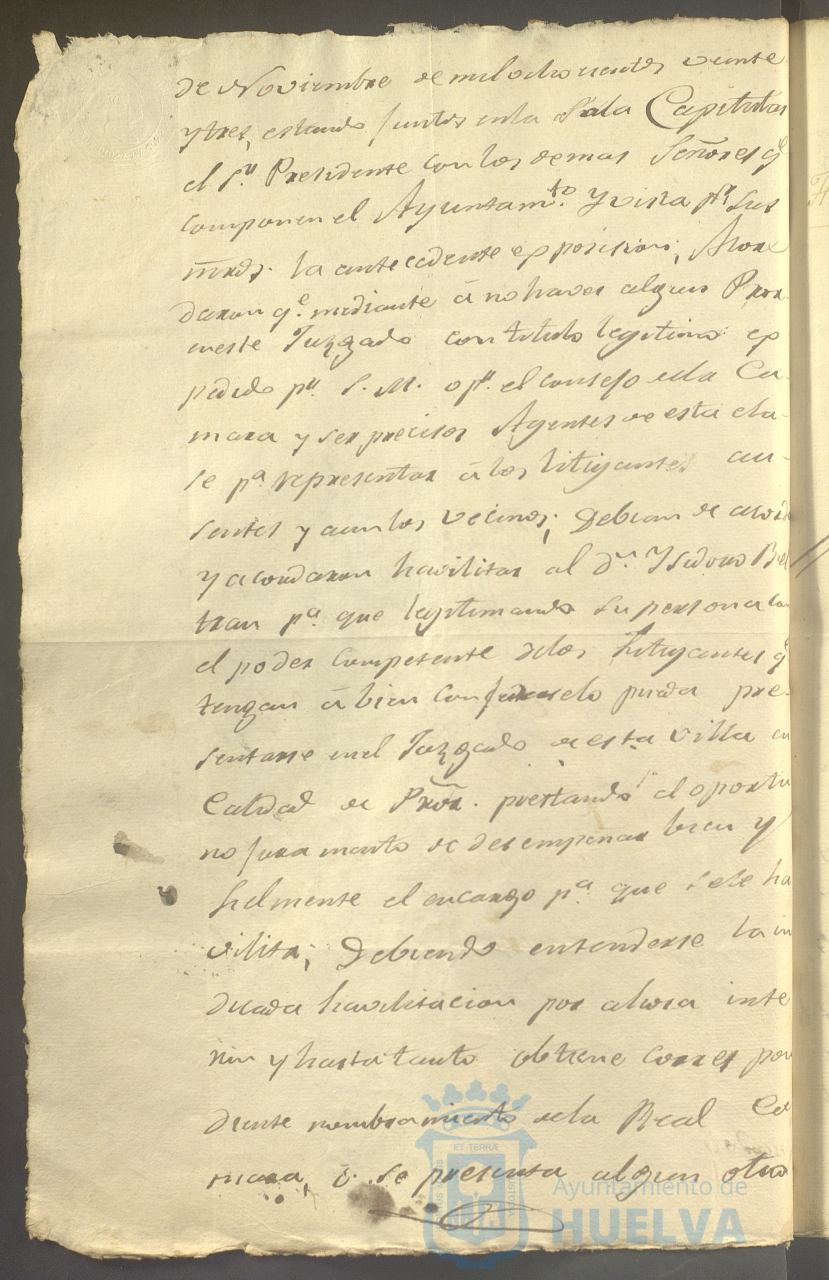 de Noviembre de mil ochocientos veinte
y tres, estando juntos en la Sala Capitular
el Sr. Presidente con los demas Señores qe
componen el Ayuntamto. y vista pr. sus
mrds. la antecedente exposicion; Acor
daron qe. mediante á no haver algun Pror.
en este Juzgado con titulo legitimo ex
pedido pr. S. M. o pr. el consejo de la Ca-
mara y ser precisos Agentes de esta cla-
se pa. representar á los litigantes au-
sentes y aun los vecinos; Debian de
y acordaron havilitar al Dn. Ysidoro Bel
tran pa. que legitimando su persona con
el poder competente de los litigantes qe
tengan á bien conferirselo pueda pre-
sentarse en el Juzgado de esta villa en
Calidad de Pror. prestando el oportu
no juramento de desempeñar bien y
fielmente el encargo pa. que se le ha
vilita; Debiendo entenderse la in
dicada havilitacion por ahora inte
rin y hasta tanto obtiene corres pon
diente nombramiento de la Real Ca
mara, ó se presenta algun otro
ET TERRÆ
Ayuntamiento de
HUELVA